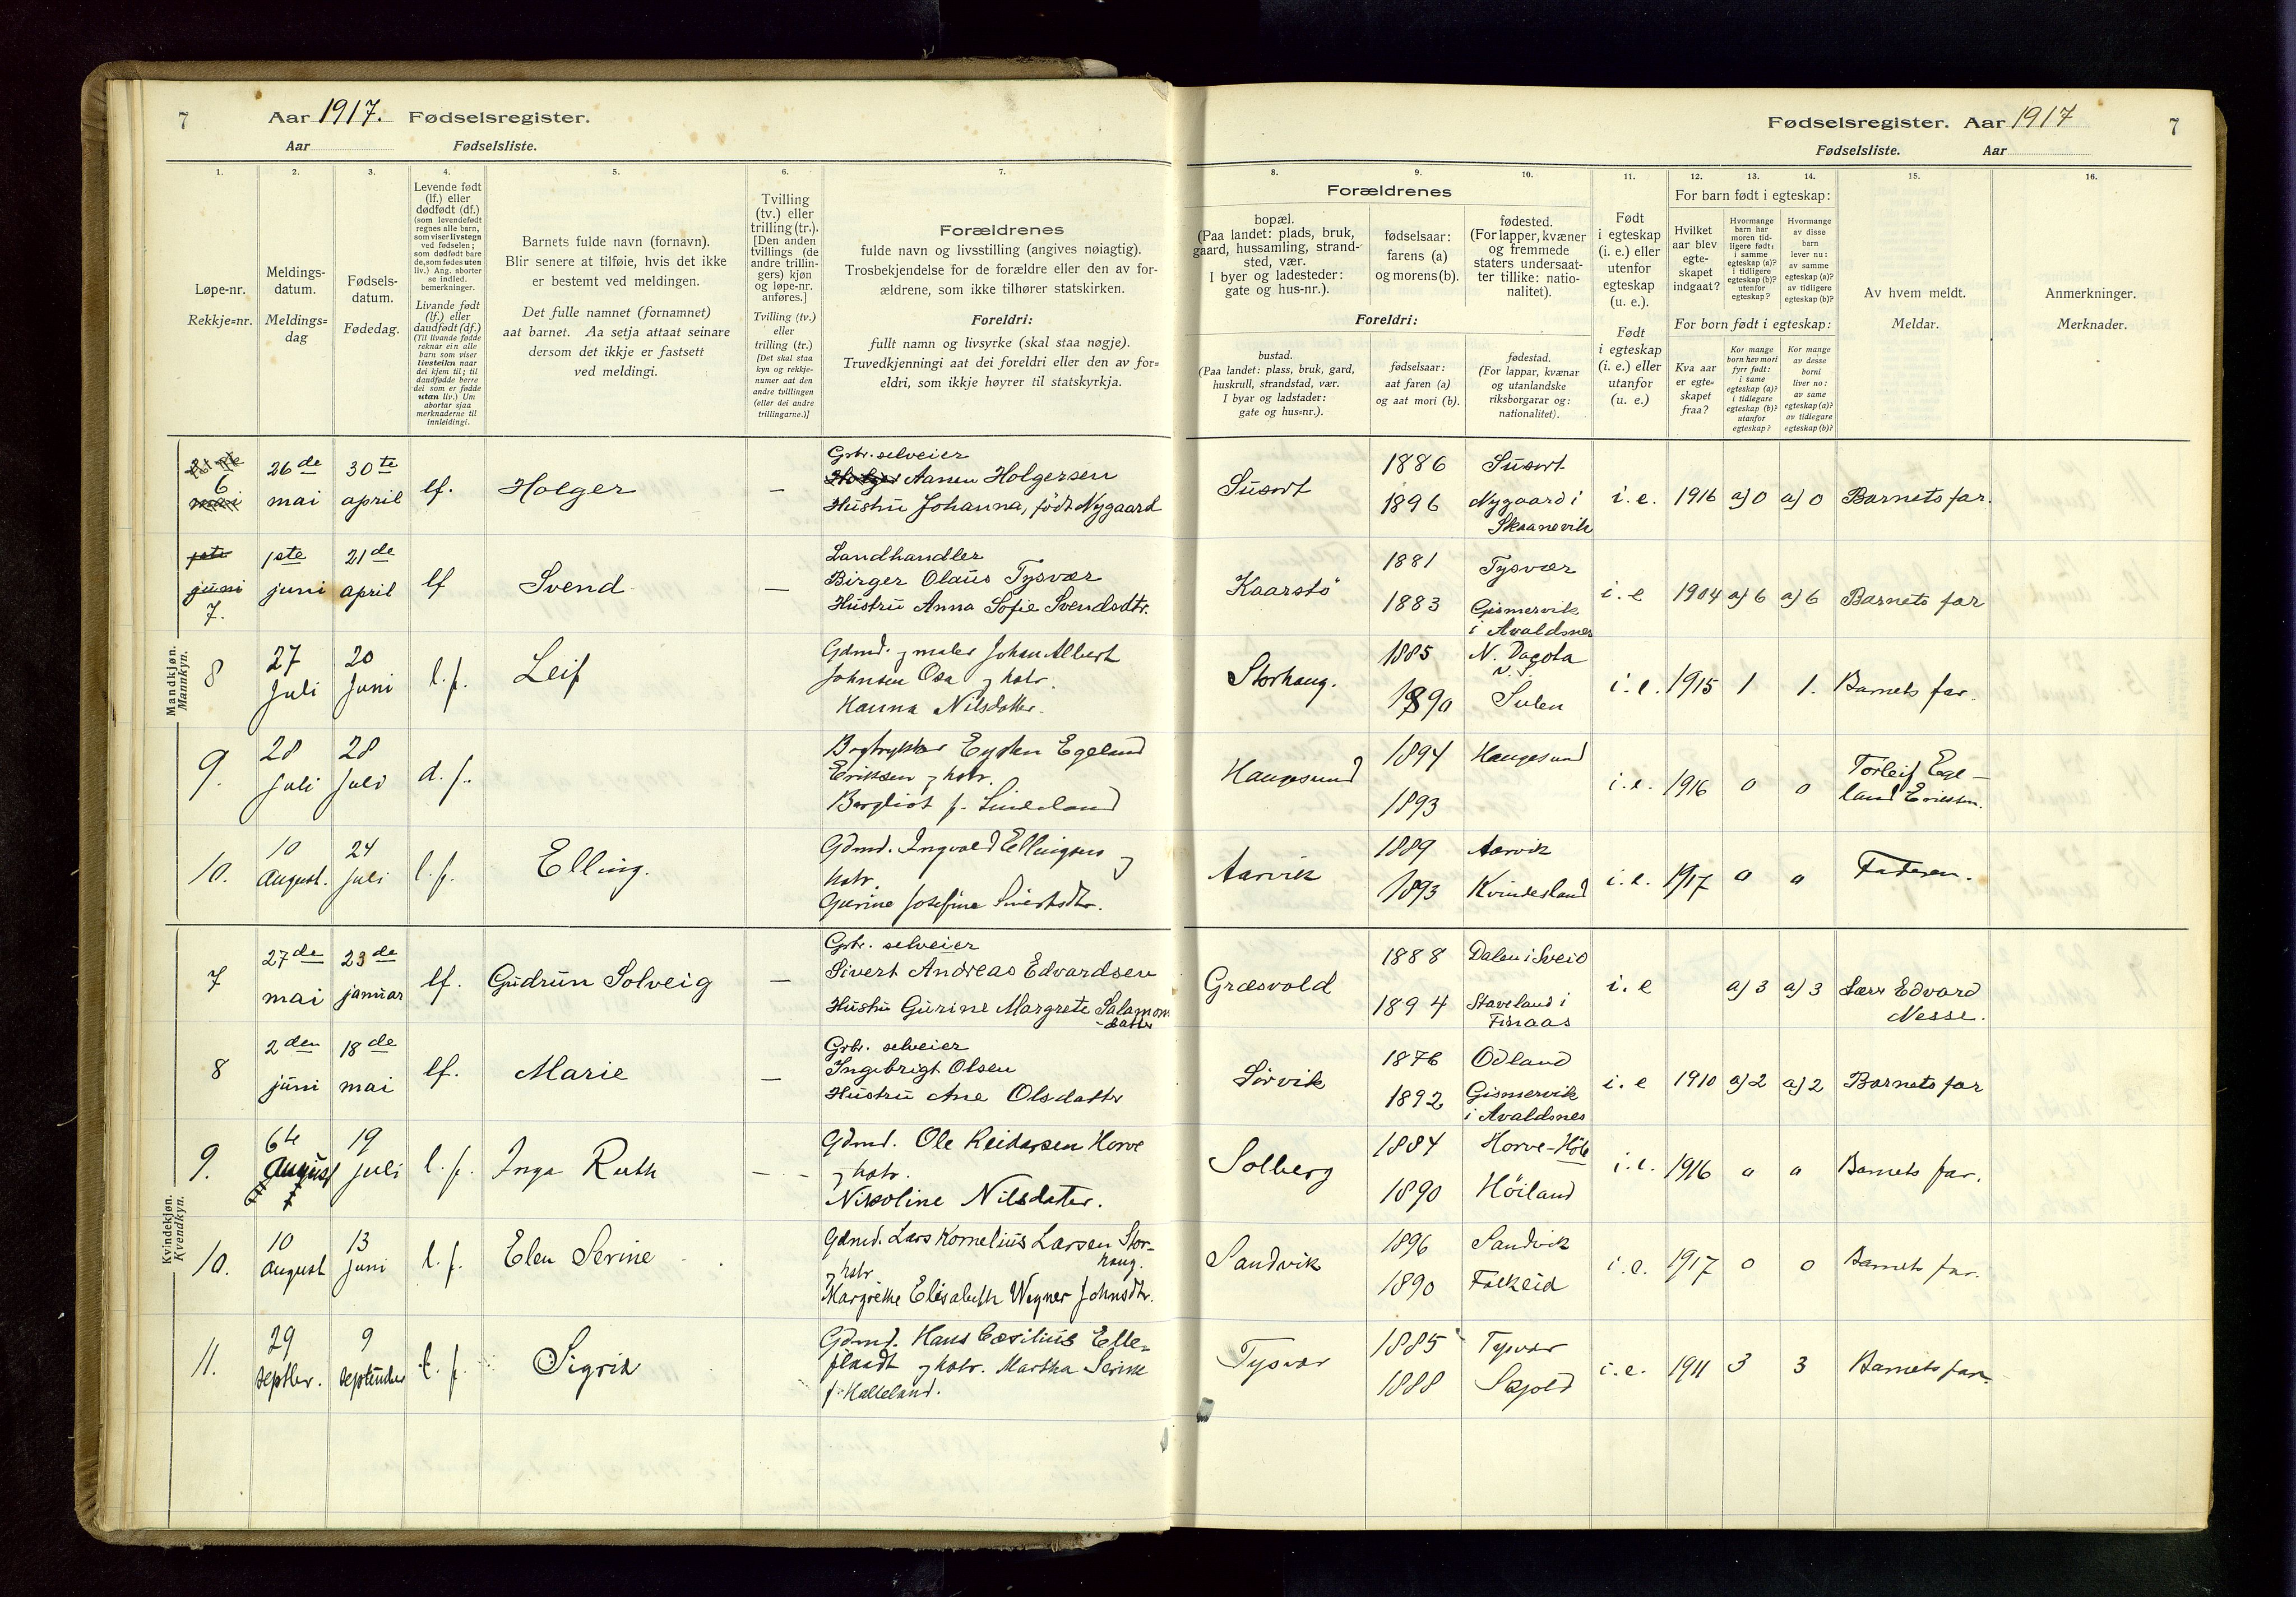 7
Aar 1917. Fødselsregister.
Aar Fødselsliste.
1.
2.
3.
4.
5.
6.
7.
Løpe-nr.
Rekkje=nr.
Meldings-
datum.
Meldings=
dag
Fødsels-
datum.
Fødedag.
Levende født
(lf.) eller
dødfødt (df.)
(som levendefødt
regnes alle barn,
som viser livstegn
ved fødselen;
som dødfødt bare
de, som fødes uten
liv.) Ang. aborter
se indled.
bemerkninger.
Livande født
(lf.) eller
daudfødt (df.)
(Til livande fødde
reknar ein alle
born som viser
livsteikn naar
dei kjem til; til
daudfødde berre
dei som er fødde
utan liv.) Um
abortar sjaa
merknaderne til
innleidingi.
Barnets fulde navn (fornavn).
Blir senere at tilføie, hvis det ikke
er bestemt ved meldingen.
Det fulle namnet (fornamnet)
aat barnet. Aa setja attaat seinare
dersom det ikkje er fastsett
ved meldingi.
Tvilling
(tv.) eller
trilling (tr.).
[Den anden
tvillings (de
andre trillin-
gers) kjøn
og løpe-nr.
anføres.]
Tvilling (tv.)
eller
trilling (tr.)
[Det skal staa
kyn og rekkje-
numer aat den
andre tvillingen
(eller dei andre
trillingarne.)]
Forældrenes
fulde navn og livsstilling (angives nøiagtig).
Trosbekjendelse for de forældre eller den av for-
ældrene, som ikke tilhører statskirken.
Foreldri:
fullt namn og livsyrke (skal staa nøgje).
Truvedkjenningi aat dei foreldri eller den av for=
eldri, som ikkje høyrer til statskyrkja.
Mandkjøn.
Mannkyn.
6 26de mai 30te april lf. Holger —
Grbr. selveier
Aanen Holgersen
Hustru Johanna, født Nygaard
7. 1ste juni 21de april lf Svend —
Landhandler
Birger Olaus Tysvær
Hustru Anna Sofie Svendsdtr.
8 27 Juli 20 Juni l. f. Leif
Gdmd. og maler Johan Albert
Johnsen Osa og hstr.
Hanna Nilsdatter.
9. 28 Juli 28 Juli d. f.
Bogtrykker Eysten Egeland
Eriksen og hstr.
Bergliot f.
10. 10 August. 24 Juli l. f. Elling.
Gdmd. Ingvald Ellingsen og
hstr.
Gurine Josefine Sivertsdtr.
Kvindekjøn.
Kvendkyn.
7 27de mai 23de januar lf. Gudrun Solveig —
Grbr. selveier
Sivert Andreas Edvardsen
Hustru Gurine Margrete Salamon
-datter
8 2den juni 18de mai lf. Marie —
Grbr. selveier
Ingebrigt Olsen
Hustru Ane Olsdatter
9. 6te August 19 Juli l. f. Inga Ruth
Gdmd. Ole Reidarsen Horve
og hstr.
Nikoline Nilsdatter.
10. 10 August 13 Juni l. f. Elen Serine
Gdmd. Lars Kornelius Larsen Stor-
haug.
og hstr
Margrethe Elisabeth Wegner Johnsdtr.
11. 29 septbr. 9 september l. f. Sigrid
Gdmd. Hans Cæsilius Elle-
og hstr. Martha Serine
f. Halleland.
Fødselsregister. Aar 1917
7
Fødselsliste. Aar
8.
9.
10.
11.
12.
13.
14.
15.
16.
Forældrenes
bopæl.
(Paa landet: plads, bruk,
gaard, hussamling, strand-
sted, vær.
I byer og ladesteder:
gate og hus-nr.).
fødselsaar:
farens (a)
og morens (b).
fødested.
(For lapper, kvæner
og fremmede
staters undersaat-
ter tillike: natio-
nalitet).
Foreldri:
bustad.
(Paa landet: plass, bruk, gard,
huskrull, strandstad, vær.
I byar og ladstader:
gate og hus=nr.).
fødselsaar:
aat faren (a)
og aat mori (b).
fødestad.
(For lappar, kvænar
og utanlandske
riksborgarar og:
nationalitet).
Født
i egteskap
(i. e.) eller
utenfor
egteskap
(u. e.).
Født
i egteskap
(i. e.) eller
utanfor
(u. e.)
For barn født i egteskap:
Hvilket
aar blev
egte-
skapet
indgaat?
Hvormange
barn har
moren tid-
ligere født:
i samme
egteskap (a)?
i tidligere
egteskap (b)?
utenfor
egteskap?
Hvormange
av disse
barn
lever nu:
av samme
egteskap (a)?
av tidligere
egteskap (b)?
For born født i egteskap:
Kva aar
er egte=
skapet
fraa?
Kor mange
born hev mori
fyrr født:
i same
egteskap (a)?
i tidlegare
egteskap (b)?
utanfor
egteskap?
Kor mange
av desse
borni
liver no:
av same
egteskap (a)?
av tidlegare
egteskap (b)?
Av hvem meldt.
Meldar.
Anmerkninger.
Merknader.
Susort 1886 Susort
1896 Nygaard i
Skaanevik
i. e. 1916 a) 0 a) 0 Barnets far.
Kaarstö 1881 Tysvær
1883 Gismervik
i Avaldsnes
i. e 1904 a) 6 a) 6 Barnets far
Storhaug. 1885 N. Dacota
1890 Sulen
i. e. 1915 1 1. Barnets far.
Haugesund 1894 Haugesund
1893
i. e. 1916 0 0 Torleif Ege-
land Eriksen.
Aarvik 1889 Aarvik
1893 Kvindesland
i. e. 1917 0 0 Faderen.
Græsvold 1888 Dalen i Sveio
1894 Staveland i
Finaas
i. e a) 3 a) 3 Lærer Edvard
Nesse.
Sörvik 1876 Odland
1892 Gismervik
i Avaldsnes
i. e 1910 a) 2 a) 2 Barnets far
Solberg 1884 Horve-
1890 Höiland
i. e. 1916 0 0 Barnets far.
Sandvik 1896 Sandvik
1890 Falkeid
i. e. 1917 0 0 Barnets far.
Tysvær 1885 Tysvær
1888 Skjold
i. e. 1911 3 3 Barnets far.